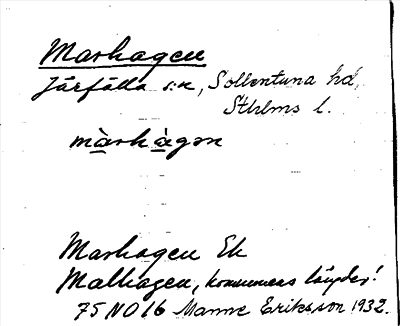 Marhagen
Järfälla s:n, Sollentuna hd,
Sthlms l.
màrhàgən
Marhagen Ek
Malhagen, kommunens längder!
75 NO 16 Manne Eriksson 1932.